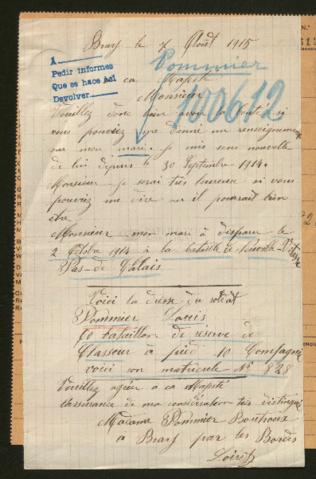 Bray le 7 Août 1915
A
Pedir informes
Que se hace Acl
Devolver
Pommier
140612
a Majesté
Monsieur
Veuillez donc bien avoir la bonté si
vous pouviez me donné un renseignement
sur mon mari. je suis sans nouvelle
de lui depuis le 30 Septembre 1914.
Monsieur je serai très heureuse si vous
pouviez me dire ou il pourrait bien
être
Monsieur mon mari à disparu le
2 Octobre 1914 à la bataille de
Pas-de-Calais
Voici la dresse du soldat
Pommier Louis
bataillon de réserve de
Chasseur à pied 10 Compagnie
voici son matricule N° 828
Veuillez agréer a sa Majesté
l'assurance de ma considération très distinguée
Madame Pommier
à Bray par les Bordes
Loiret